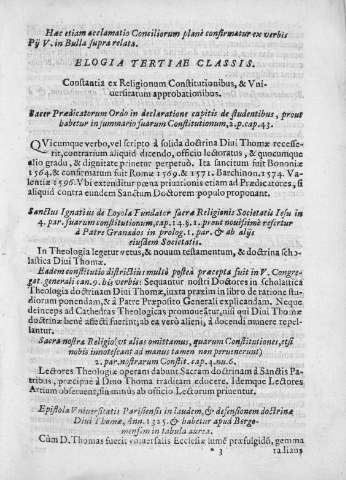 Hæc etiam acclamatio Conciliorum planè confirmatur ex verbis
Pij V. in Bulla supra relata.
ELOGIA TERTIAE CLASSIS.
Constantia ex Religionum Constitutionibus, & Vni-
uersitatum approbationibus.
Sacer Prædicatorum Ordo in declaratione capitis de studentibus, prout
habetur in summario suarum Constitutionum, 2. p. cap. 43.
QVicumque verbo, vel scripto à solida doctrina Diui Thomæ recesse-
rit, contrarium aliquid dicendo, officio lectoratus, & quocumque
alio gradu, & dignitate priuetur perpetuò. Ita sancitum fuit Bononiæ
1564. & confirmatum fuit Romæ 1569. & 1571. Barchinon. 1574. Va-
lentiæ 1596. Vbi extenditur pœna priuationis etiam ad Prædicatores, si
aliquid contra eundem Sanctum Doctorem populo proponant.
Sanctus Ignatius de Loyola Fundator sacræ Religionis Societatis Iesu in
4. par. suarum constitutionum, cap. 14. §. 1. prout nouissimè refertur
à Patre Granados in prolog. 1. par. & ab alijs
eiusdem Societatis.
In Theologia legetur vetus, & nouum testamentum, & doctrina scho-
lastica Diui Thomæ.
Eadem constitutio districtiùs multò posteà præcepta fuit in V. Congre-
gat. generali can. 9. his verbis: Sequantur nostri Doctores in scholastica
Theologia doctrinam Diui Thomæ, iuxta praxim in libro de ratione stu-
diorum ponendam, & à Patre Præposito Generali explicandam. Neque
deinceps ad Cathedras Theologicas promoueatur, nisi qui Diui Thomæ
doctrinæ benè affecti fuerint; ab ea verò alieni, à docendi munere repel-
lantur.
Sacra nostra Religio (vt alias omittamus, quarum Constitutiones, etsi
nobis innotescant ad manus tamen non peruenerunt)
2. par. nostrarum Constit. cap. 4. nu. 6.
Lectores Theologiæ operam dabunt Sacram doctrinam à Sanctis Pa-
tribus, præcipuè à Diuo Thoma traditam educere. Idemque Lectores
Artium obseruent, sin minus ab officio Lectorum priuentur.
Epistola Vniuersitatis Parisiensis in laudem, & defensionem doctrinæ
Diui Thomæ, Ann. 1325. & habetur apud Bergo-
mensem in tabula aurea.
Cùm D. Thomas fuerit vniuersalis Ecclesiæ lumē præfulgidū, gemma
* 3 radians